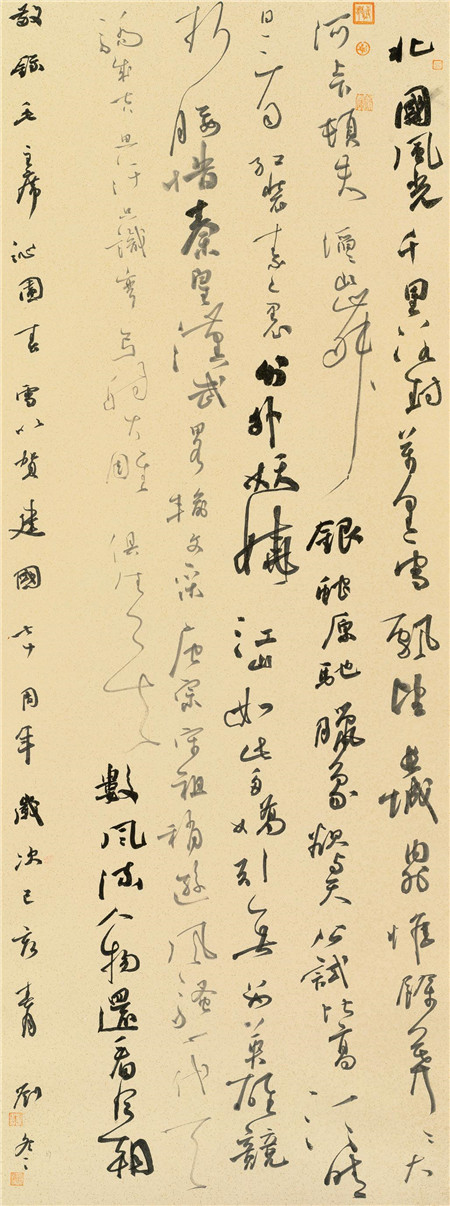 北國風光千里冰封萬里雪飄望長城內外惟餘莽〻大
河上下頓失滔〻山舞銀蛇原馳臘象欲與天公試比高須晴
日看紅裝素裹分外妖嬈江山如此多嬌引無數英雄競
折腰惜秦皇漢武略輸文采唐宗宋祖稍遜風騷一代天
驕成吉思汗只識彎弓射大雕俱往矣數風流人物還看今朝
敬錄毛主席沁園春雪以賀建國七十周年歲次己亥春月劉